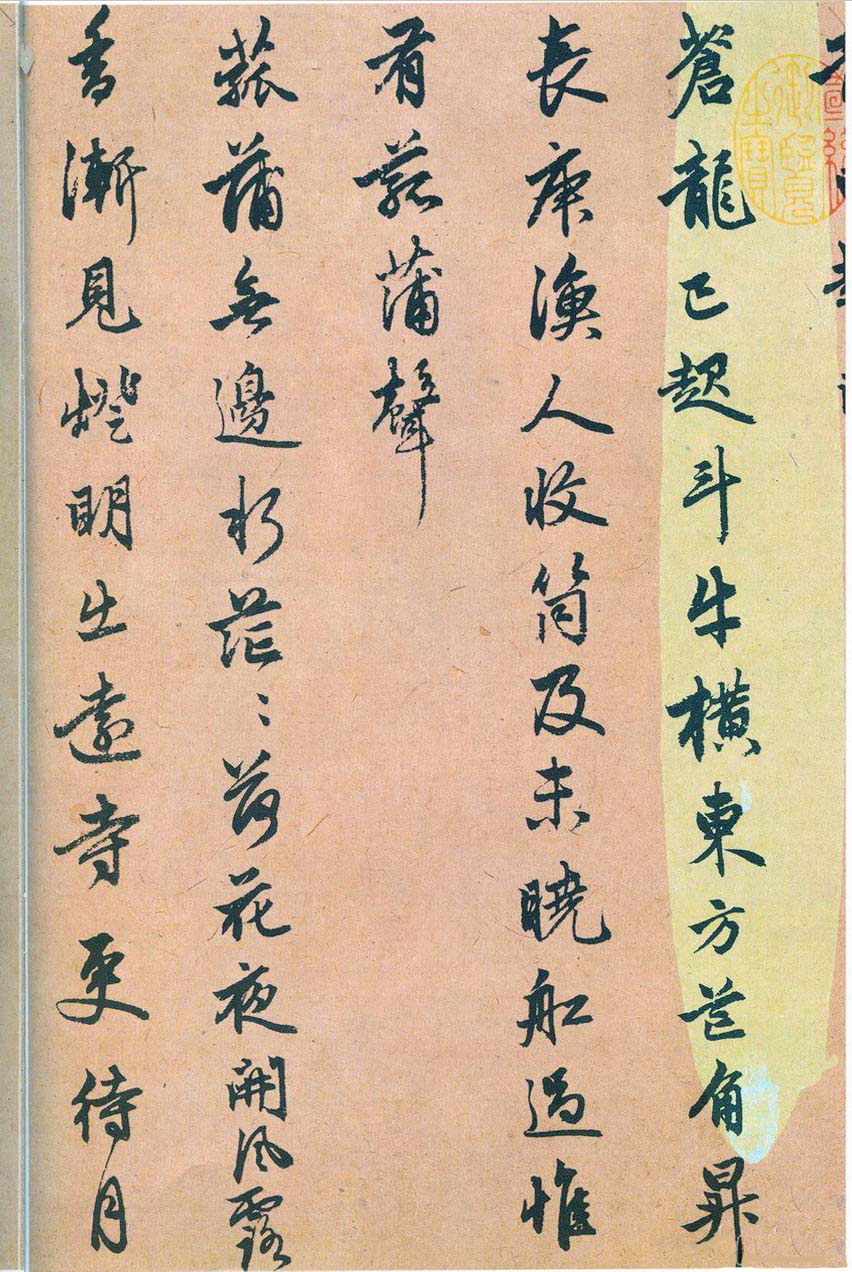 蒼龍已起斗牛橫東方芒角昇
長庚漁人收筒及未曉船過惟
有菰蒲聲
菰蒲無邊水茫〻荷花夜開風露
香漸見燈明出遠寺更待月
御覽之寶